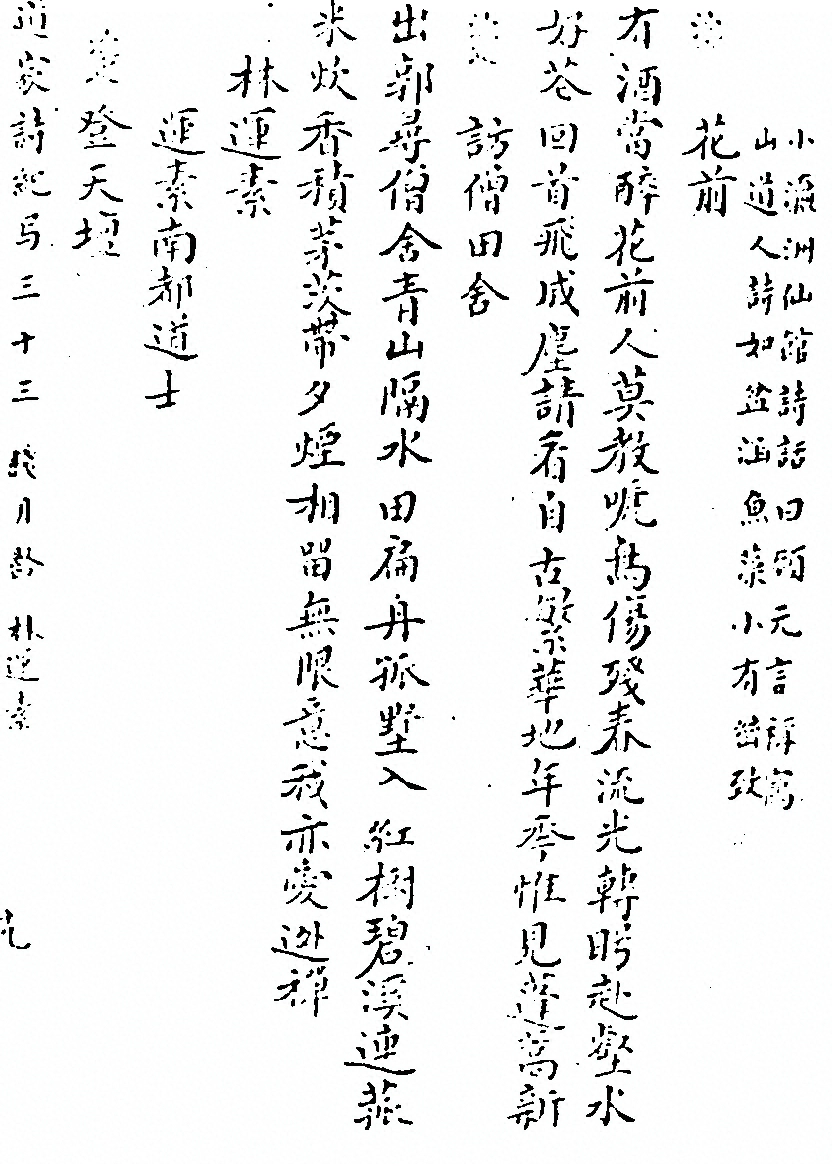 小瀛洲仙館詩話曰頌元言禪寓
山道人詩如盆涵魚藻小有幽致
花前
有酒當醉花前人莫教啼鳥傷殘春流光轉眄赴壑水
好花回首飛成塵請看自古繁華地年年惟見蓬蒿新
訪僧田舍
出郭尋僧舍青山隔水田扁舟孤墅入紅樹碧溪連蒸
米炊香積茅茨帶夕煙相留無限意我亦愛逃禪
林運素
運素南都道士
登天壇
道家詩紀 三十三 林運素